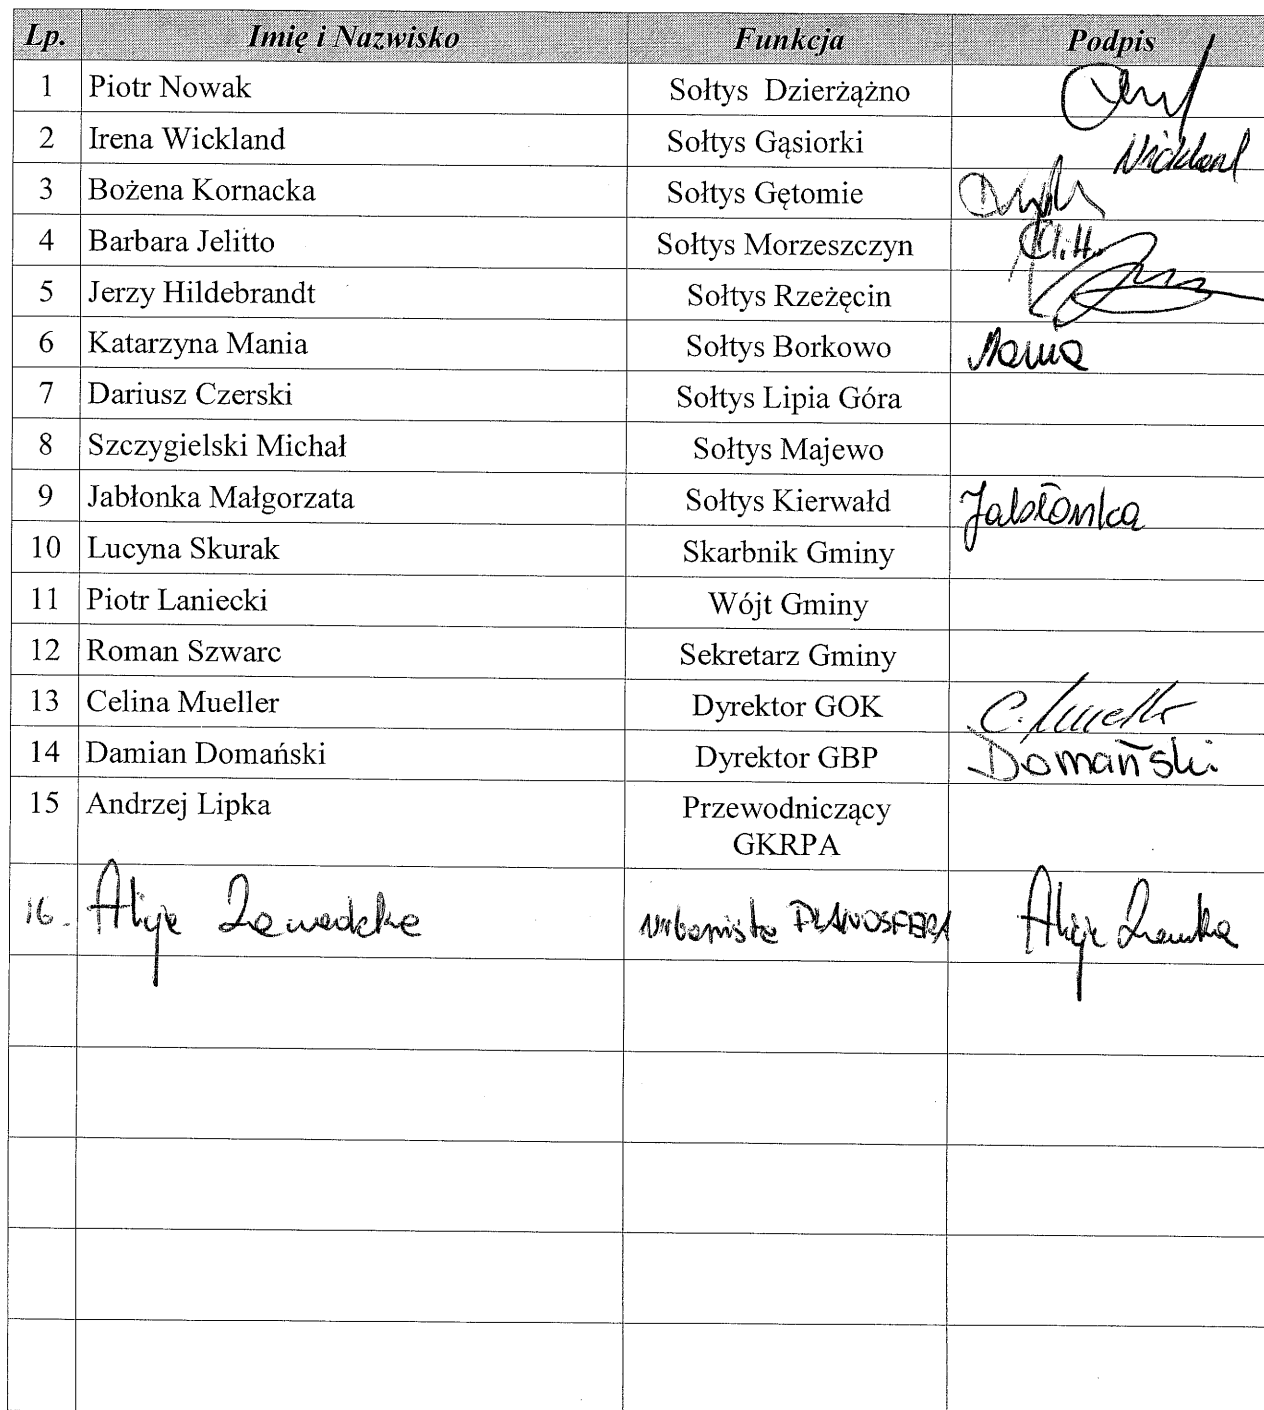 Lp. Imię i Nazwisko Funkcja Podpis
1 Piotr Nowak Sołtys Dzierżążno
2 Irena Wickland Sołtys Gąsiorki Wickland
3 Bożena Kornacka Sołtys Gętomie
4 Barbara Jelitto Sołtys Morzeszczyn
5 Jerzy Hildebrandt Sołtys Rzeżęcin
6 Katarzyna Mania Sołtys Borkowo Mania
7 Dariusz Czerski Sołtys Lipia Góra
8 Szczygielski Michał Sołtys Majewo
9 Jabłonka Małgorzata Sołtys Kierwałd Jabłonka
10 Lucyna Skurak Skarbnik Gminy
11 Piotr Laniecki Wójt Gminy
12 Roman Szwarc Sekretarz Gminy
13 Celina Mueller Dyrektor GOK C. Mueller
14 Damian Domański Dyrektor GBP Domański
15 Andrzej Lipka Przewodniczący
GKRPA
16. Alicja Zawadzka urbanista PLANOSFERA Alicja